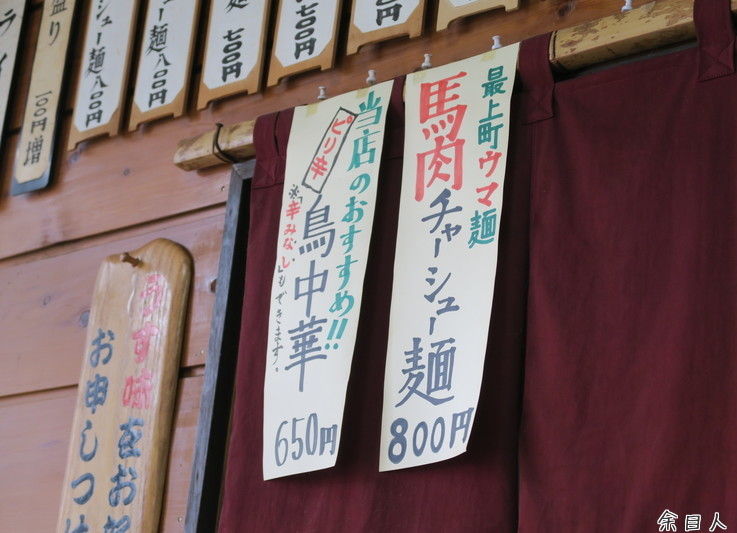 最上町ウマ麺
馬肉
チャーシュー麺
800円
当店のおすすめ!!
ピリ辛
鳥中華
※「辛みなし」もできます。
650円
800
700円
700円
麺800円
シュー麺800円
盛り
100円増
ライ
うす味
をお
お申しつけ
余目人